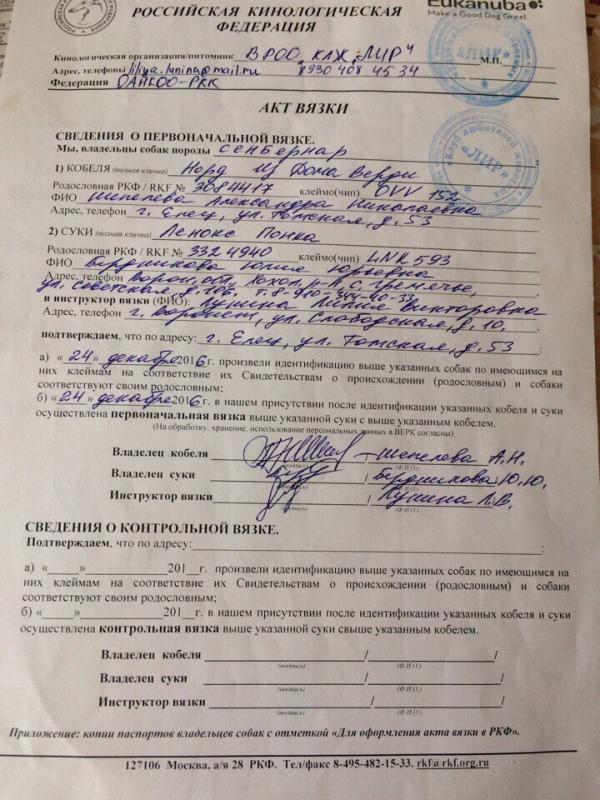 РОССИЙСКАЯ КИНОЛОГИЧЕСКАЯ
ФЕДЕРАЦИЯ
Eukanuba
Make a Good Dog Great.
Кинологическая организация/питомник ВРОО КЛЖ "ЛИР"
М.П.
Адрес, телефоны liliya.lunina@mail.ru 8930 408 45 34
Федерация ОАНКОО-РКК
«ЛИР»
АКТ ВЯЗКИ
СВЕДЕНИЯ О ПЕРВОНАЧАЛЬНОЙ ВЯЗКЕ.
Мы, владельцы собак породы сенбернар
Клуб любителей животных «ЛИР»
1) КОБЕЛЯ (полная кличка) Норд Из Дома Верди
Родословная РКФ / RKF № 3084417 клеймо(чип) OVV 152
ФИО Шепелева Александра Николаевна
Адрес, телефон г. Елец, ул. Томская, д. 53
2) СУКИ (полная кличка) Ленокс Понка
Родословная РКФ / RKF № 3324940 клеймо(чип) LNK 593
ФИО Бердникова Юлия Юрьевна
Адрес, телефон Ворон. обл, Хохол. р-н, с. Гремячье,
ул. Советская т. 8-910-344-40-33
и инструктор вязки (ФИО): Лунина Лилия Викторовна
Адрес, телефон г. Воронеж, ул. Слободская, д. 10,
подтверждаем, что по адресу: г. Елец, ул. Томская, д. 53 ;
а) «24» декабря 2016 г. произвели идентификацию выше указанных собак по имеющимся на
них клеймам на соответствие их Свидетельствам о происхождении (родословным) и собаки
соответствуют своим родословным;
б) «24» декабря 2016 г. в нашем присутствии после идентификации указанных кобеля и суки
осуществлена первоначальная вязка выше указанной суки с выше указанным кобелем.
(На обработку, хранение, использование персональных данных в ВЕРК согласны).
Владелец кобеля / Шепелева А.Н.
(подпись) (Ф.И.О.)
Владелец суки / Бердникова Ю.Ю.
(подпись) (Ф.И.О.)
Инструктор вязки / Лунина Л.В.
(подпись) (Ф.И.О.)
СВЕДЕНИЯ О КОНТРОЛЬНОЙ ВЯЗКЕ.
Подтверждаем, что по адресу: ;
а) «_____»__________201__г. произвели идентификацию выше указанных собак по имеющимся на
них клеймам на соответствие их Свидетельствам о происхождении (родословным) и собаки
соответствуют своим родословным;
б) «_____»__________201__г. в нашем присутствии после идентификации указанных кобеля и суки
осуществлена контрольная вязка выше указанной суки свыше указанным кобелем.
Владелец кобеля ____________/____________/
(подпись) (Ф.И.О.)
Владелец суки ____________/____________/
(подпись) (Ф.И.О.)
Инструктор вязки ____________/____________/
(подпись) (Ф.И.О.)
Приложение: копии паспортов владельцев собак с отметкой «Для оформления акта вязки в РКФ».
127106 Москва, а/я 28 РКФ. Тел/факс 8-495-482-15-33. rkf@rkf.org.ru